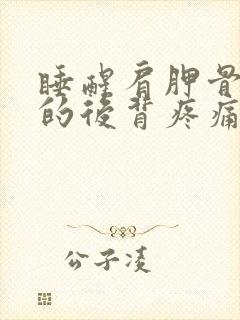 睡醒肩胛骨
的后背疼痛
公子凌